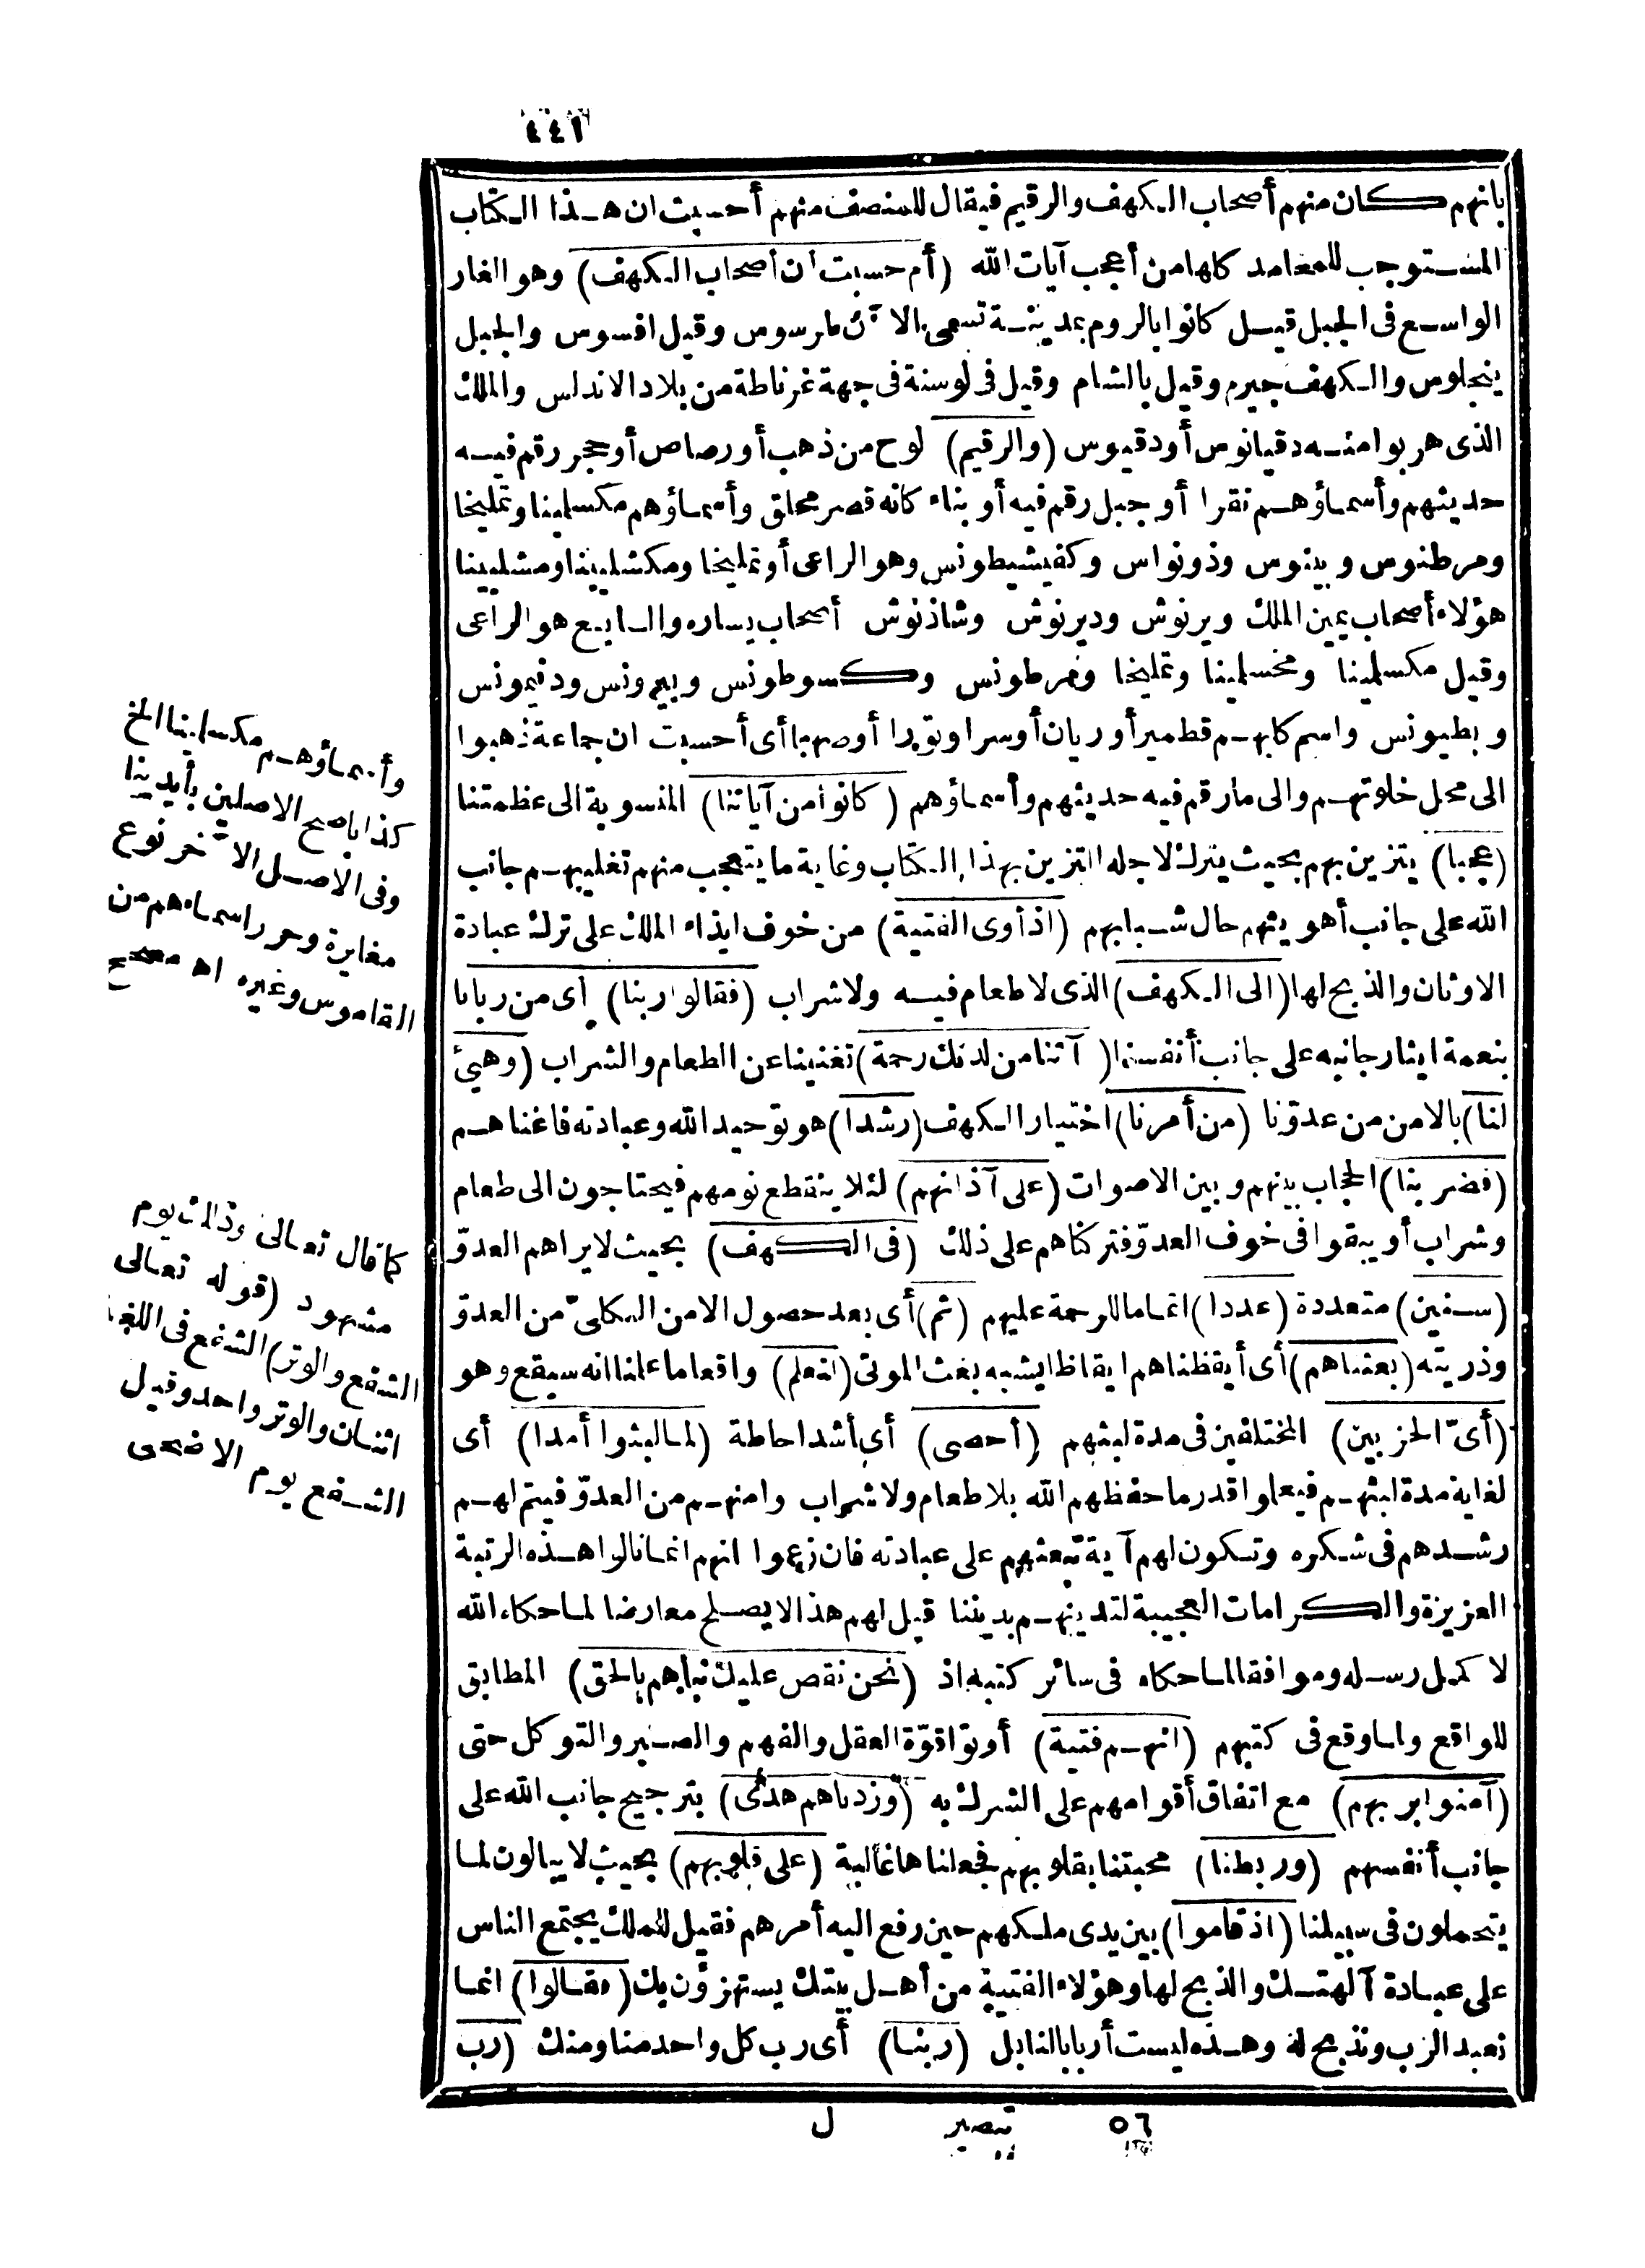 ٤٤١
بانهم كان منهم أصحاب الكهف والرقيم فيقال للمنصف منهم أحسبت ان هذا الكتاب
المستوجب للمحامد كلها من أعجب آيات الله (أم حسبت أن أصحاب الكهف) وهو الغار
الواسع فى الجبل قيل كانوا بالروم بمدينة تسمى الآن طرسوس وقيل افسوس والجبل
ينجلوس والكهف جيرم وقيل بالشام وقيل فى لوسنة فى جهة غرناطة من بلاد الاندلس والملك
الذى هربوا منه دقيانوس أو دقيوس (والرقيم) لوح من ذهب أو رصاص أو حجر رقم فيه
حديثهم وأسماؤهم نقرا أو جبل رقم فيه أو بناء كانه قصر محلق وأسماؤهم مكسلينا وتمليخا
ومرطنوس وبينوس وذونواس وكفيشيطونس وهو الراعى أو تمليخا ومكشليينا ومشليينا
هؤلاء أصحاب يمين الملك ويرنوش وديرنوش وشاذنوش أصحاب يساره والسابع هو الراعى
وقيل مكسلينا ومخسلينا وتمليخا ومرطونس وكسوطونس وبيرونس ودنيمونس
وبطيونس واسم كلبهم قطمير أو ريان أو سرا وتورا أو صهبا أى أحسبت ان جماعة ذهبوا
الى محل خلوتهم والى ما رقم فيه حديثهم وأسماؤهم (كانوا من آياتنا) المنسوبة الى عظمتنا
(عجبا) يتزين بهم بحيث يترك لاجله التزين بهذا الكتاب وغاية ما يتعجب منهم تغليبهم جانب
الله على جانب أهويتهم حال شبابهم (اذ أوى الفتية) من خوف ايذاء الملك على ترك عبادة
الاوثان والذبح لها (الى الكهف) الذى لا طعام فيه ولا شراب (فقالوا ربنا) أى من ربانا
بنعمة ايثار جانبه على جانب أنفسنا (آتنا من لدنك رحمة) تغنينا عن الطعام والشراب (وهيئ
لنا) بالامن من عدوّنا (من أمرنا) اختيار الكهف (رشدا) هو توحيد الله وعبادته فاغناهم
(فضربنا) الحجاب بينهم وبين الاصوات (على آذانهم) لئلا ينقطع نومهم فيحتاجون الى طعام
وشراب أو يبقوا فى خوف العدوّ فتركناهم على ذلك (فى الكهف) بحيث لا يراهم العدوّ
(سنين) متعددة (عددا) اتماما للرحمة عليهم (ثم) أى بعد حصول الامن الكلىّ من العدوّ
وذريته (بعثناهم) أى أيقظناهم ايقاظا يشبه بعث الموتى (لنعلم) واقعا ما علمنا انه سيقع وهو
(أىّ الحزبين) المختلفين فى مدة لبثهم (أحصى) أى أشد احاطة (لما لبثوا أمدا) أى
لغاية مدة لبثهم فيعلموا قدر ما حفظهم الله بلا طعام ولا شراب وامنهم من العدوّ فيتم لهم
رشدهم فى شكره وتكون لهم آية تبعثهم على عبادته فان زعموا انهم انما نالوا هذه الرتبة
العزيزة والكرامات العجيبة لتدينهم بديننا قيل لهم هذا لا يصلح معارضا لما حكاه الله
لاكمل رسله وموافقا لما حكاه فى سائر كتبه اذ (نحن نقص عليك نبأهم بالحق) المطابق
للواقع ولما وقع فى كتبهم (انهم فتية) أوتوا قوّة العقل والفهم والصبر والتوكل حتى
(آمنوا بربهم) مع اتفاق أقوامهم على الشرك به (وزدناهم هدى) بترجيح جانب الله على
جانب أنفسهم (وربطنا) محبتنا بقلوبهم فجعلناها غالبة (على قلوبهم) بحيث لا يبالون لما
يتحملون فى سبيلنا (اذ قاموا) بين يدى ملكهم حين رفع اليه أمرهم فقيل للملك يجتمع الناس
على عبادة آلهتك والذبح لها وهؤلاء الفتية من أهل بيتك يستهزؤن بك (فقالوا) انما
نعبد الرب ونذبح له وهذه ليست أربابا لنا بل (ربنا) أى رب كل واحد منا ومنك (رب
وأسماؤهم مكسلينا الخ
كذا باصح الاصلين بأيدينا
وفى الاصل الآخر نوع
مغايرة وحرر اسماءهم من
القاموس وغيره اه مصحح
كما قال تعالى وذلك يوم
مشهود (قوله تعالى
الشفع والوتر) الشفع فى اللغة
اثنان والوتر واحد وقيل
الشفع يوم الاضحى
٥٦ تبصير ل